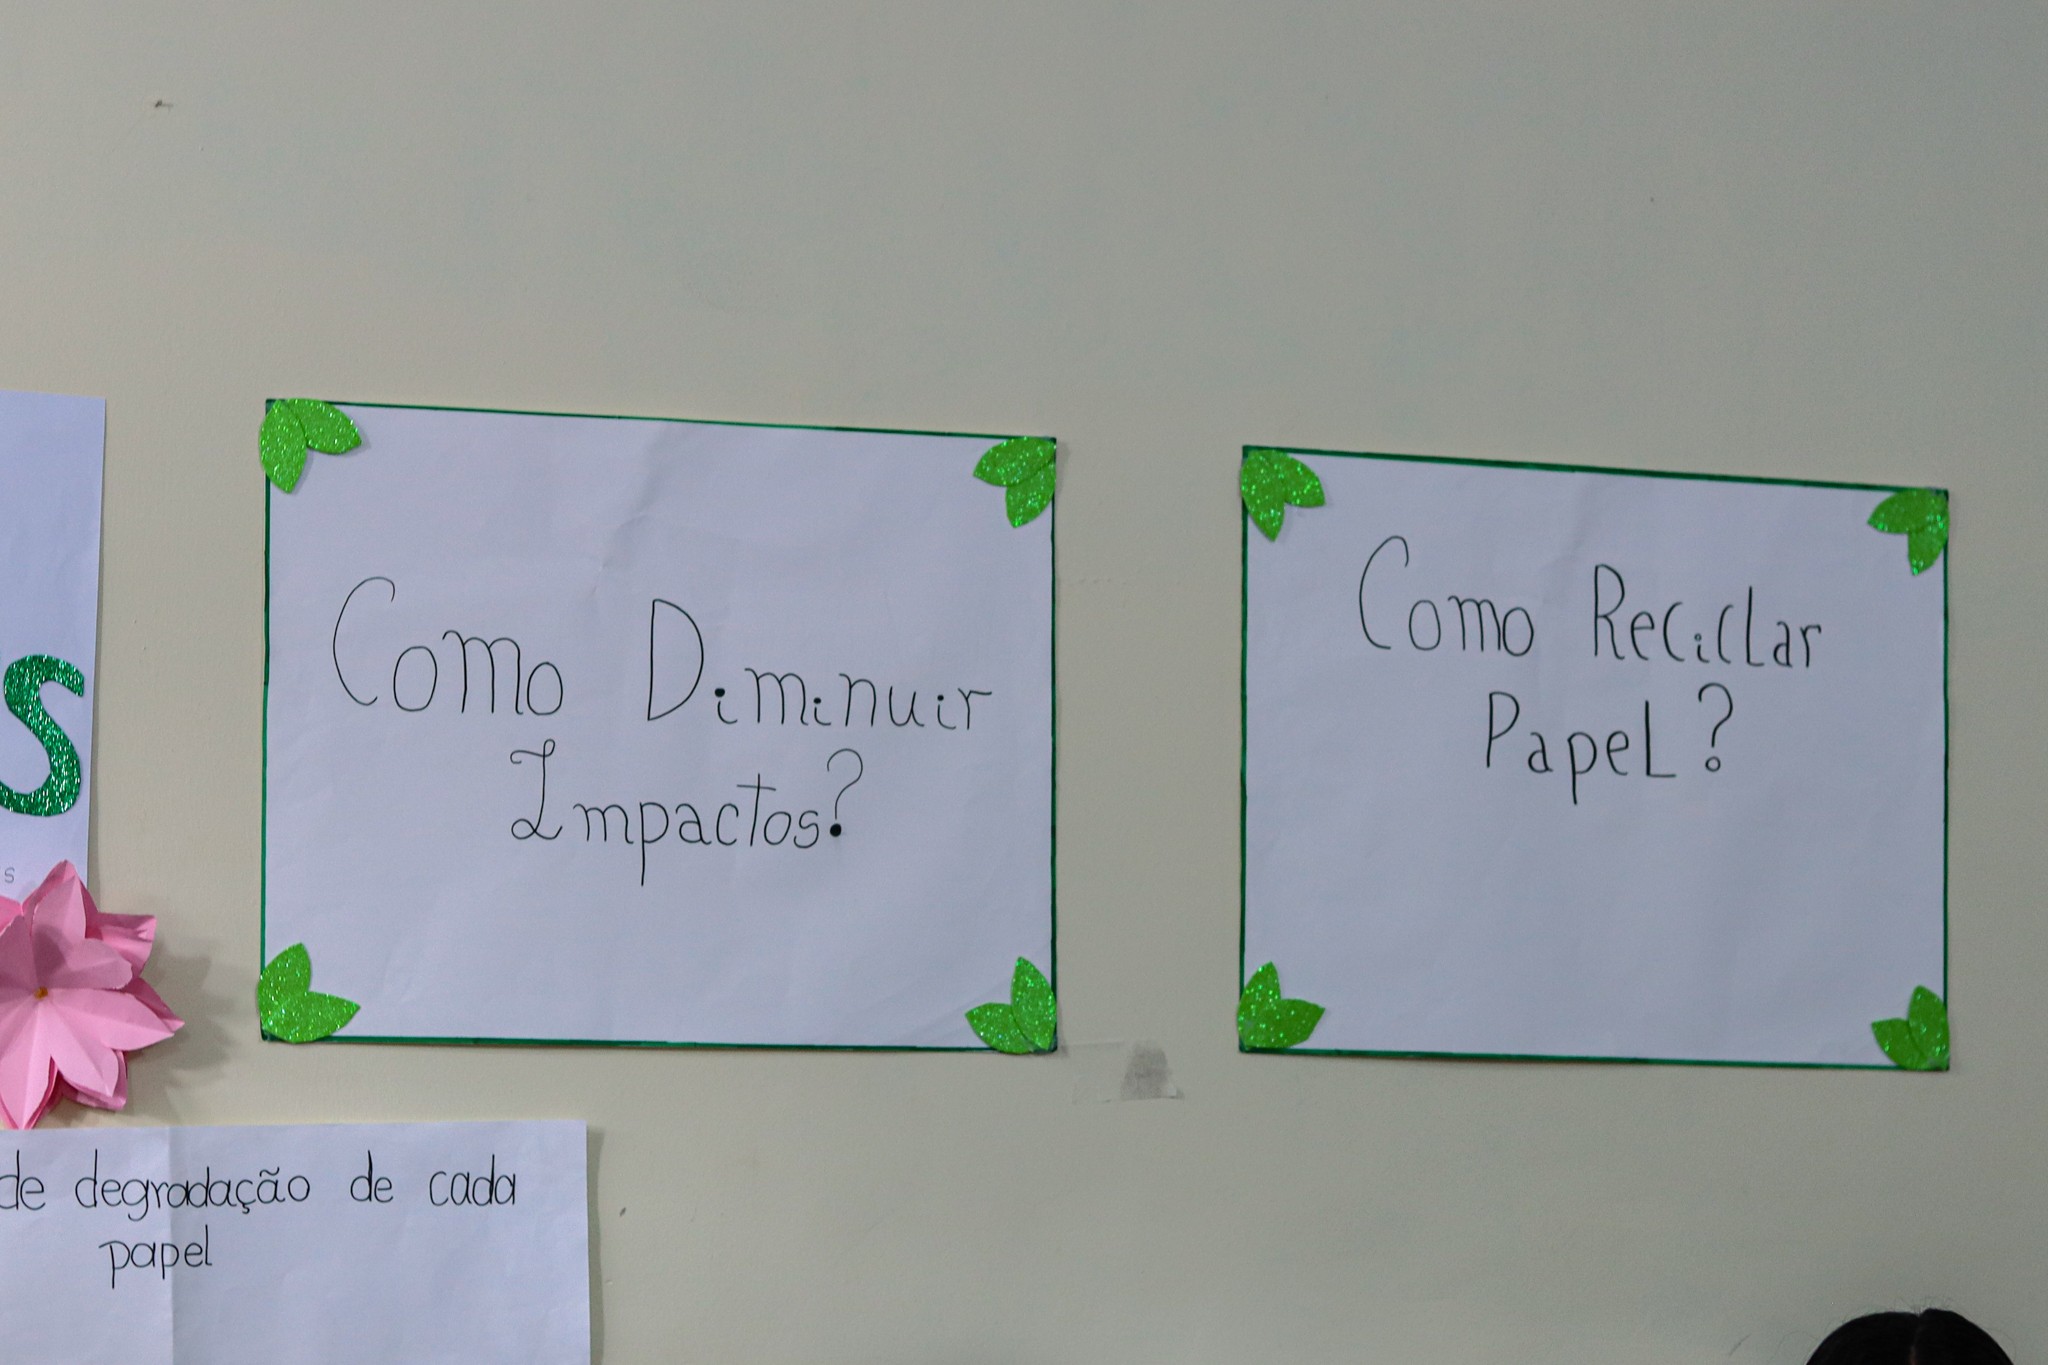 S
s
Como Diminuir
Impactos?
Como Reciclar
Papel?
de degradação de cada
papel